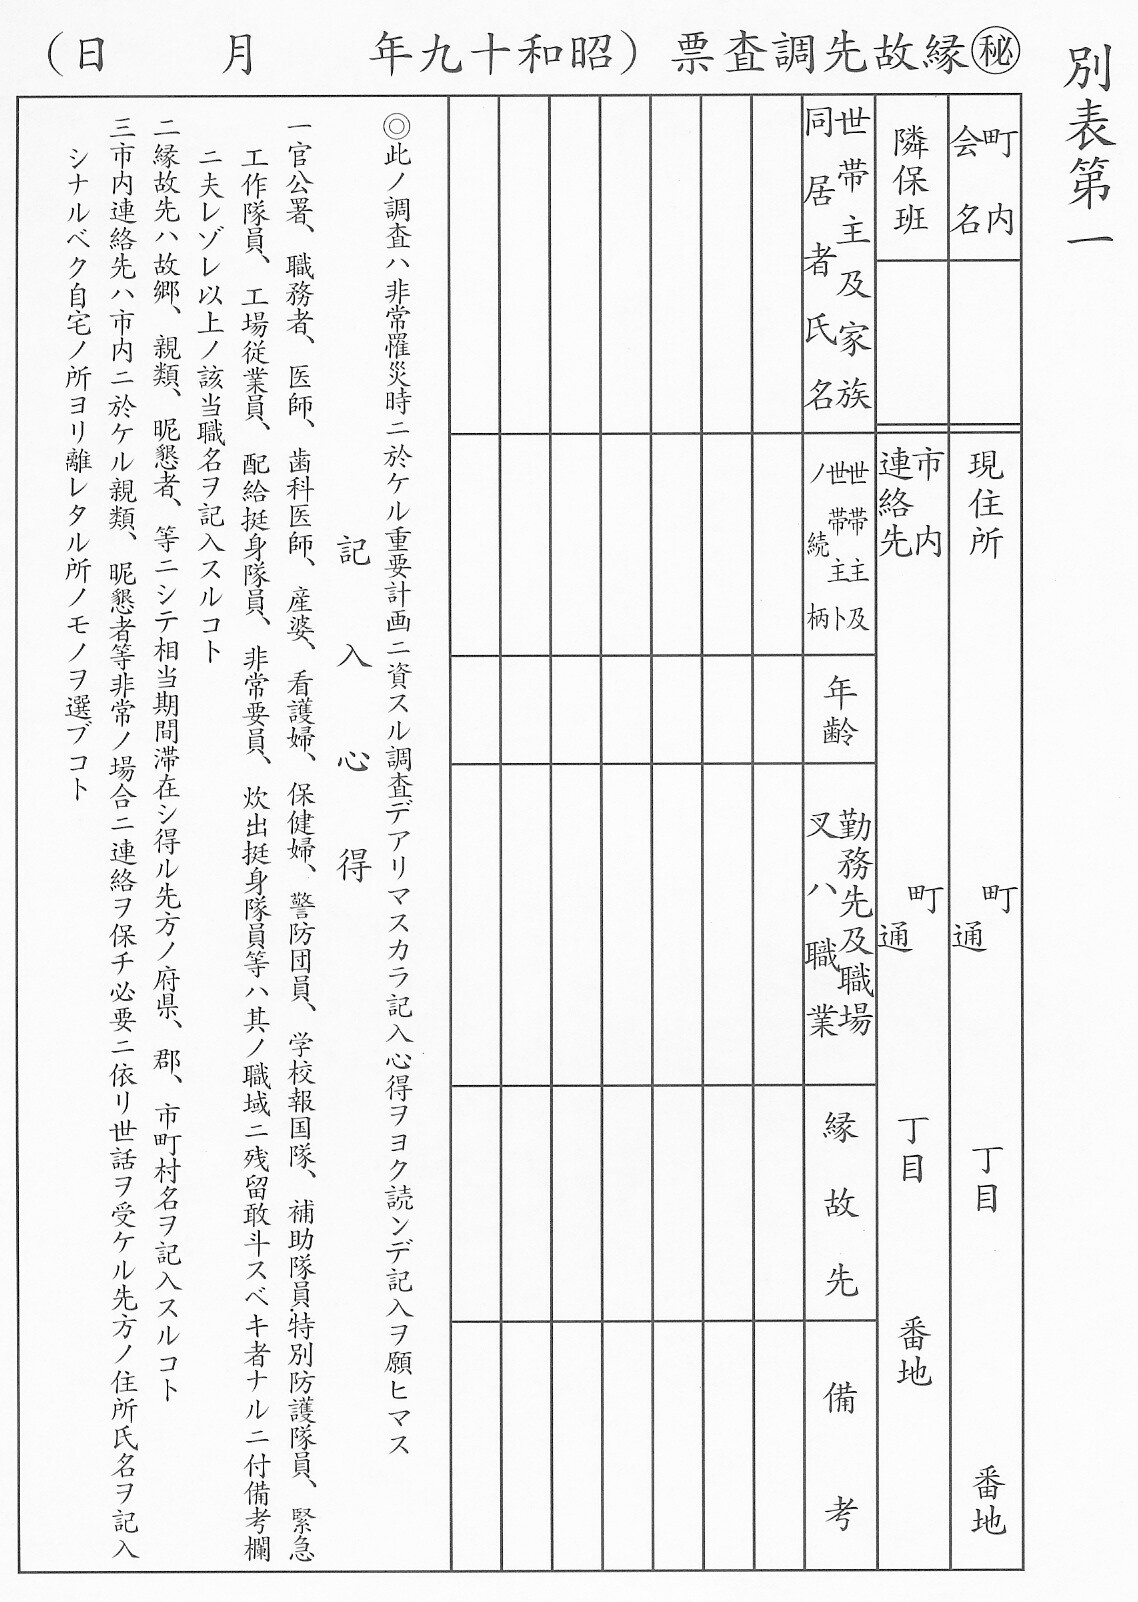 別表第一
㊙縁故先調査票（昭和十九年　　月　　日）
町内会名
現住所　　町通　　丁目　　番地
隣保班
市内連絡先　　町通　　丁目　　番地
世帯主及家族同居者氏名
世帯主及世帯主トノ続柄
年齢
勤務先及職場又ハ職業
縁故先
備考
◎此ノ調査ハ非常罹災時ニ於ケル重要計画ニ資スル調査デアリマスカラ記入心得ヲヨク読ンデ記入ヲ願ヒマス
記入心得
一官公署、職務者、医師、歯科医師、産婆、看護婦、保健婦、警防団員、学校報国隊、補助隊員.特別防護隊員、緊急
工作隊員、工場従業員、配給挺身隊員、非常要員、炊出挺身隊員等ハ其ノ職域ニ残留敢斗スベキ者ナルニ付備考欄
ニ夫レゾレ以上ノ該当職名ヲ記入スルコト
二縁故先ハ故郷、親類、昵懇者、等ニシテ相当期間滞在シ得ル先方ノ府県、郡、市町村名ヲ記入スルコト
三市内連絡先ハ市内ニ於ケル親類、昵懇者等非常ノ場合ニ連絡ヲ保チ必要ニ依リ世話ヲ受ケル先方ノ住所氏名ヲ記入
シナルベク自宅ノ所ヨリ離レタル所ノモノヲ選ブコト